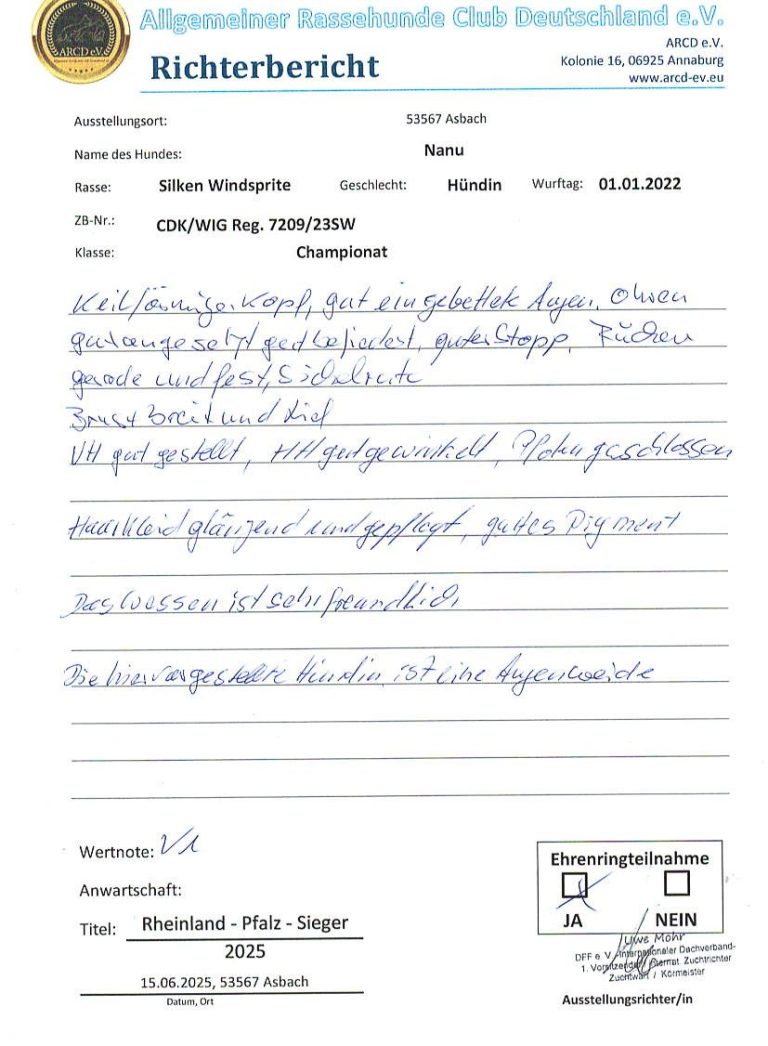 Allgemeiner Rassehunde Club Deutschland e.V.
ARCD e.V.
ARCD e.V.
Kolonie 16, 06925 Annaburg
www.arcd-ev.eu
Richterbericht
Ausstellungsort: 53567 Asbach
Name des Hundes: Nanu
Rasse: Silken Windsprite Geschlecht: Hündin Wurftag: 01.01.2022
ZB-Nr.: CDK/WIG Reg. 7209/23SW
Klasse: Championat
Keilförmiger Kopf, gut eingebettete Augen, Ohren
gut angesetzt gut befiedert, guter Stopp, Rücken
gerade und fest, Sichelrute
Brust Breit und tief
VH gut gestellt, HH gut gewinkelt, Pfoten geschlossen
Haarkleid glänzend und gepflegt, gutes Pigment
Das Wessen ist sehr freundlich
Die hier vorgestellte Hündin ist eine Augenweide
Wertnote: V1
Anwartschaft:
Titel: Rheinland - Pfalz - Sieger
2025
15.06.2025, 53567 Asbach
Datum, Ort
Ehrenringteilnahme
JA NEIN
Uwe Mohr
DFF e. V. Internationaler Dachverband-
1. Vorsitzender / Internat. Zuchtrichter
Zuchtwart / Körmeister
Ausstellungsrichter/in